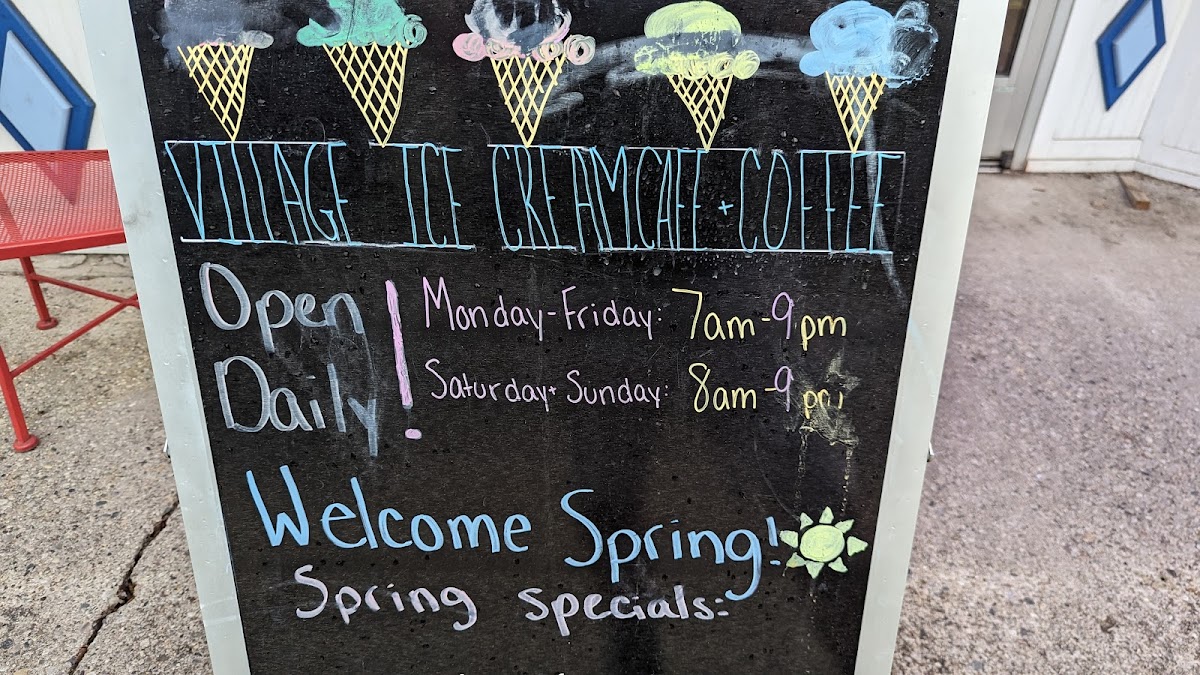 VILLAGE ICE CREAM CAFE + COFFEE
Open Daily!
Monday-Friday: 7am-9pm
Saturday + Sunday: 8am-9pm
Welcome Spring!
Spring specials: